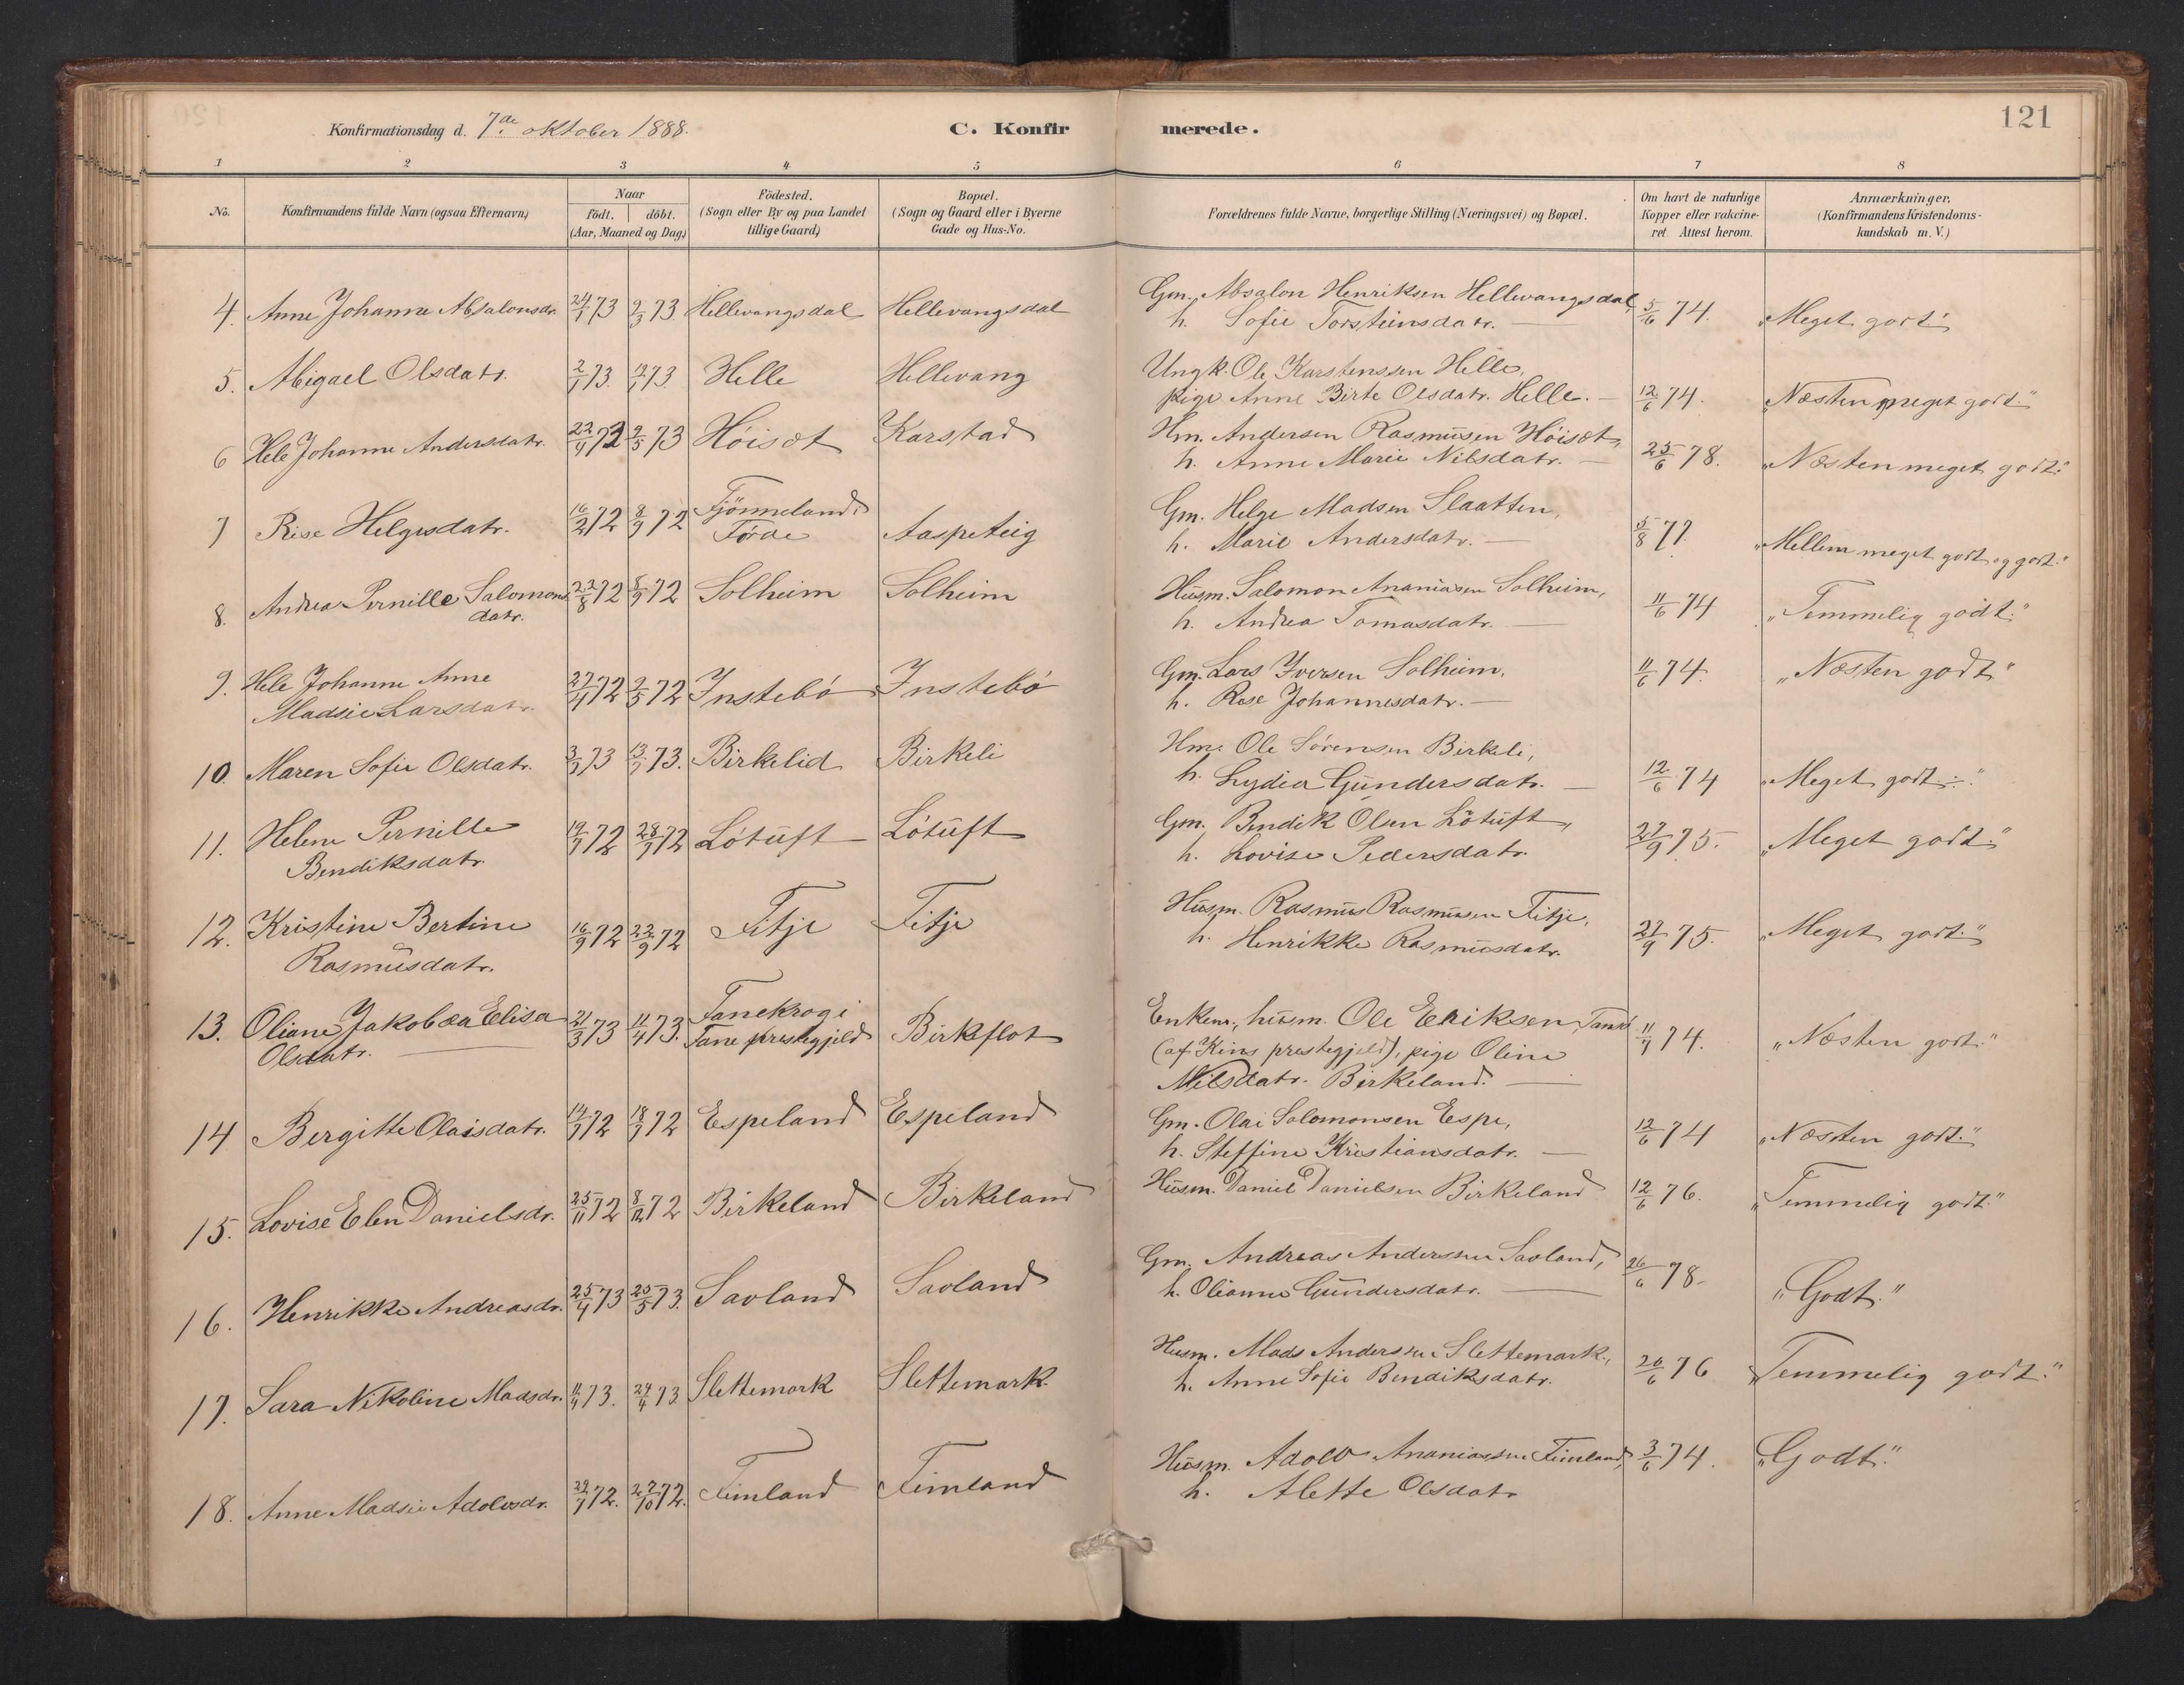 121
Konfirmationsdag d. 7de oktober 1888.
C. Konfirmerede.
1 2 3 4 5 6 7 8
No.
Konfirmandens fulde Navn (ogsaa Efternavn)
Naar
födt. döbt.
(Aar, Maaned og Dag)
Födested.
(Sogn eller By og paa Landet
tillige Gaard)
Bopæl.
(Sogn og Gaard eller i Byerne
Gade og Hus-No.
Forældrenes fulde Navne, borgerlige Stilling (Næringsvei) og Bopæl.
Om havt de naturlige
Kopper eller vakcine-
ret Attest herom.
Anmærkninger,
(Konfirmandens Kristendoms-
kundskab m. V.)
4. Anne Johanne Absalonsdr. 24/1 73 2/3 73. Hellevangsdal Hellevangsdal Gm. Absalon Henriksen Hellevangsdal, 5/6 74. "Meget godt"
h. Sofie Torsteinsdatr. —
5. Abigael Olsdatr. 2/1 73. 19/1 73. Helle Hellevang Ungk. Ole Karstenssen Helle,
pige Anne Birte Olsdatr. Helle. — 12/6 74. "Næsten meget godt."
6 Hele Johanne Andersdatr. 5/73 Höisæt Karstad Hm. Andersen Rasmusen Höisæt,
h. Anne Marie Nilsdatr. — 25/6 78. "Næsten meget godt."
7 Rise Helgesdatr. 16/2 72 8/9 72 Fjönneland i
Förde Aaspeteig Gm. Helge Madsen Slaatten,
h. Marie Andersdatr. — 5/8 77. "Mellem meget godt og godt."
8. Andrea Pernille Salomons
datr. 23/8 72 8/9 72 Solheim Solheim Husm. Salomon Ananiasen Solheim,
h. Andrea Tomasdatr. — 11/6 74 "Temmelig godt."
9. Hele Johanne Anne
Madsie Larsdatr. 72 72 Instebö Instebö Gm. Lars Iversen Solheim,
h. Rise Johannesdatr. — 11/6 74. "Næsten godt"
10. Maren Sofie Olsdatr. 73 73. Birkelid Birkeli Hm. Ole Sörensen Birkeli,
h. Lydia Gundersdatr. — 12/6 74 "Meget godt÷."
11. Helene Pernille
Bendiksdatr. 72 72 Lötuft Lötuft Gm. Bendik Olsen Lötuft,
h. Lovise Pedersdatr. 27/9 75. "Meget godt."
12. Kristine Bertine
Rasmusdatr. 16/9 72 22/9 72 Fitje Fitje Husm. Rasmus Rasmusen Fitje,
h. Henrikke Rasmusdatr. 27/9 75. "Meget godt."
13. Oliane Jakobæa Elisa
Olsdatr. — 21/3 73 11/4 73. Tanekrog i
Tane prestegjeld Birkeflot Enkem., husm. Ole Eriksen
(af Kins prestegjeld), pige Oline
Nilsdatr. Birkeland. — 74. "Næsten godt."
14 Bergitte Olaisdatr. 72 72 Espeland Espeland Gm. Olai Salomonsen Espe,
h. Steffine Kristiansdatr. — 12/6 74 "Næsten godt."
15. Lovise Elen Danielsdr. 25/11 72 8/12 72 Birkeland Birkeland Husm. Daniel Danielsen Birkeland 12/6 76. "Temmelig godt."
16. Henrikke Andreasdr. 25/4 73 25/5 73. Savland Savland Gm. Andreas Anderssen Savland,
h. Olianne Gundersdatr. — 26/6 78. "Godt."
17. Sara Nikoline Madsdr. 11/4 73. 24/4 73. Slettemark Slettemark. Husm. Mads Anderssen Slettemark,
h. Anne Sofie Bendiksdatr. 26/6 76 "Temmelig godt."
18. Anne Madsie Adolvsdr. 72. 27/10 72. Fimland Fimland Husm. Adolv Ananiassen Fimland, 3/6 74. "Godt."
h. Alette Olsdatr